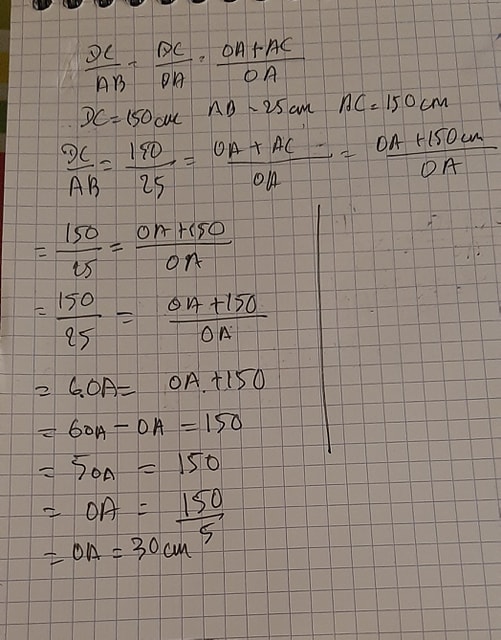 DC/AB = DC/OA = OA+AC/OA
DC=150cm AB=25cm AC=150cm
DC/AB = 150/25 = OA+AC/OA = OA+150cm/OA
= 150/25 = OA+150/OA
= 150/25 = OA+150/OA
= 6.OA= OA+150
= 6OA-OA=150
= 5OA = 150
= OA = 150/5
= OA=30cm